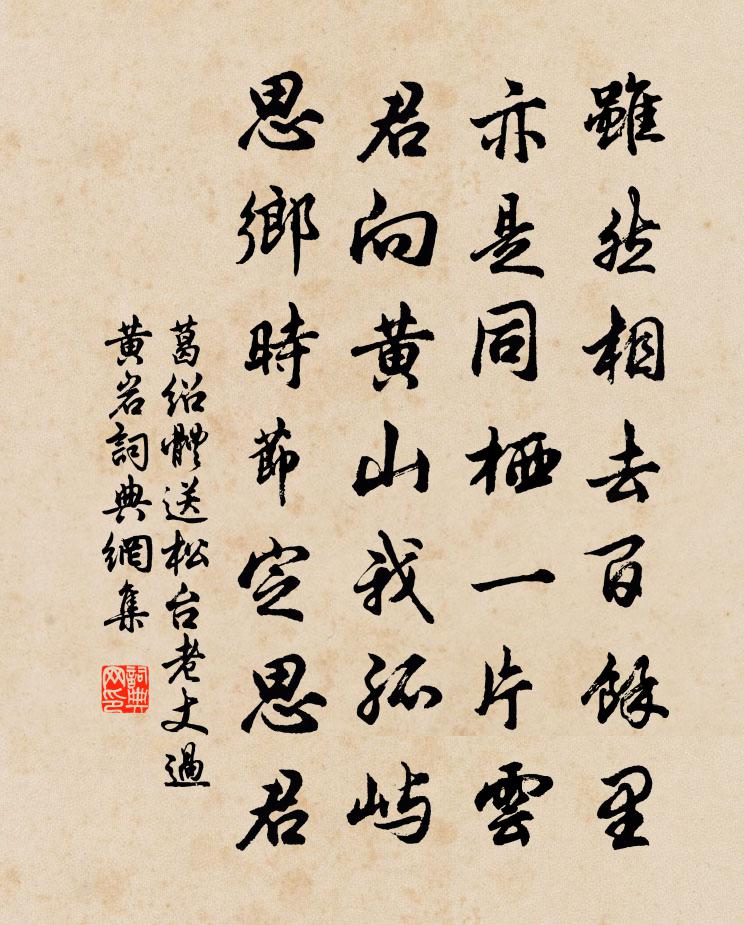 雖然相去百餘里
亦是同栖一片雲
君向黃山我孤嶼
思鄉時節定思君
葛紹體送松台老丈過
黃岩詞典網集
詞典網印